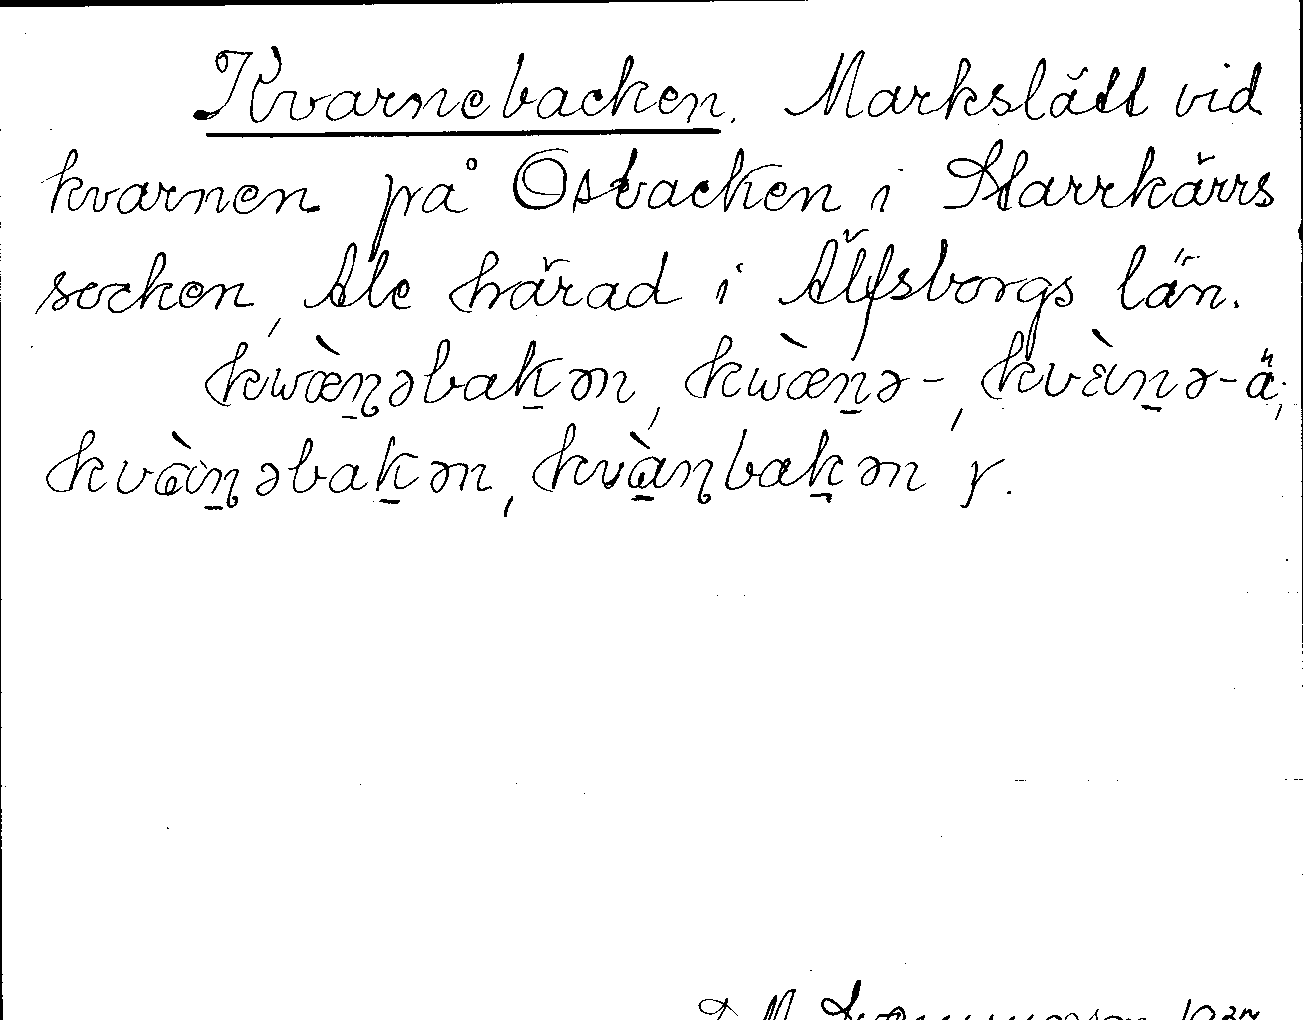 Kvarnebacken. Markslått vid
kvarnen på Osbacken i Starrkärrs
socken, Ale härad i Älfsborgs län.
kwæ̀n̠əbak̠ən, kwæ̀n̠ə-, kvàn̠ə- ä;
kvɑ̀n̠əbak̠ən, kvɑ̠̀ɳbak̠ən y.